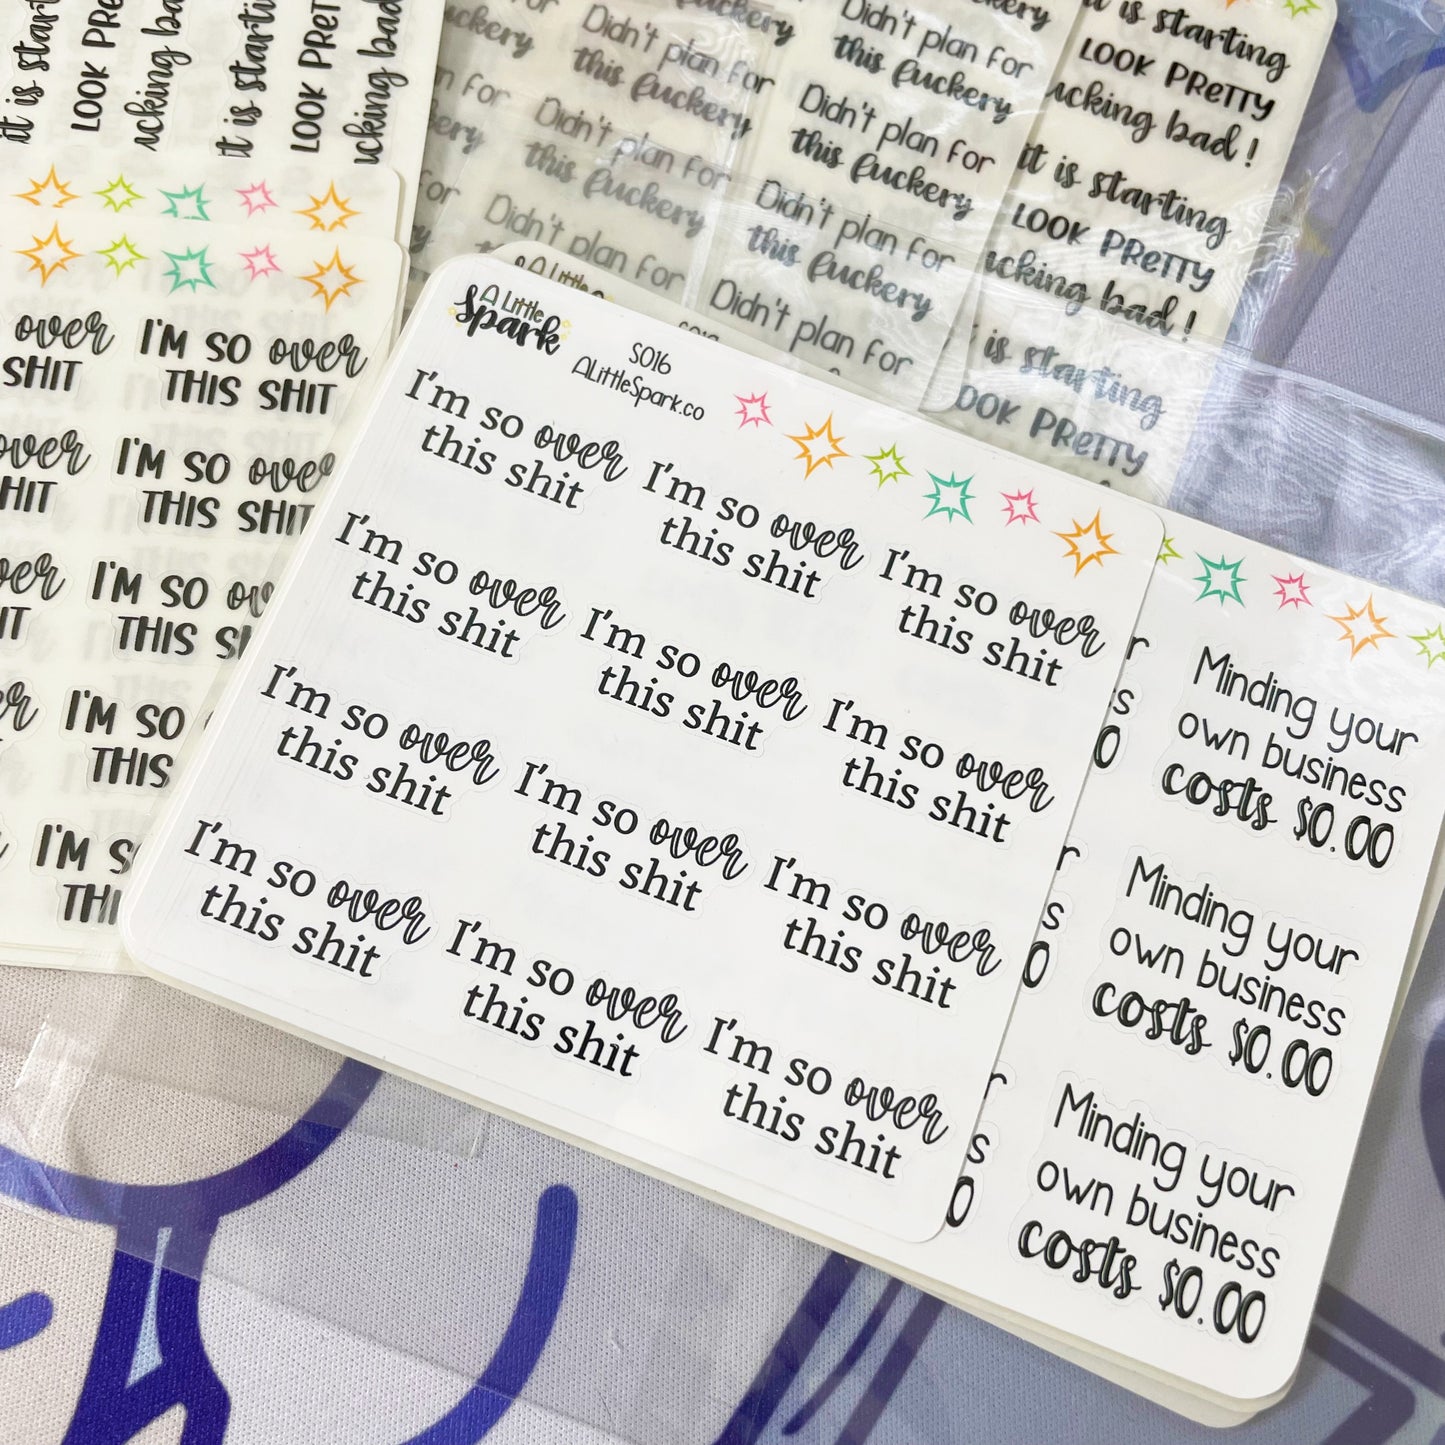 it is starti
LOOK PRe
ucking bad
it is starti
LOOK PRet
ucking bad
for
uckery
n for
Didn't plan for
this fuckery
Didn't plan for
this fuckery
Didn't plan for
Didn't plan for
this fuckery
Didn't plan for
this fuckery
Didn't plan for
this fuckery
Didn't plan for
it is starting
LOOK PReTTY
ucking bad!
it is starting
LOOK PReTTY
ucking bad!
is starting
OOK PReTTY
over
SHIT
I'M SO over
THIS SHIT
over
HIT
I'M SO over
THIS SHIT
ver
IT
I'M SO ov
THIS SH
er
I'M SO
THIS
I'M S
THI
A Little
A Little
Spark
S016
ALittleSpark.co
I'm so over
this shit
I'm so over
this shit
I'm so over
this shit
I'm so over
this shit
I'm so over
this shit
I'm so over
this shit
I'm so over
this shit
I'm so over
this shit
I'm so over
this shit
I'm so over
this shit
I'm so over
this shit
I'm so over
this shit
r
s
0
Minding your
own business
costs $0.00
r
s
0
Minding your
own business
costs $0.00
r
s
0
Minding your
own business
costs $0.00